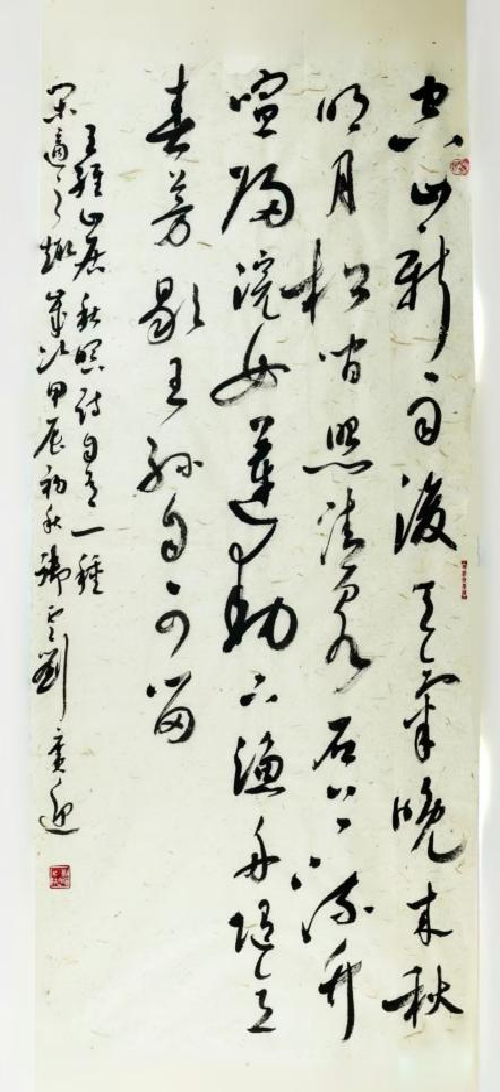 空山新雨後天氣晚來秋
明月松間照清泉石上流竹
喧歸浣女蓮動下漁舟隨意
春芳歇王孫自可留
王維山居秋暝詩自有一種
閑適之趣歲次甲辰初秋劉廣迎